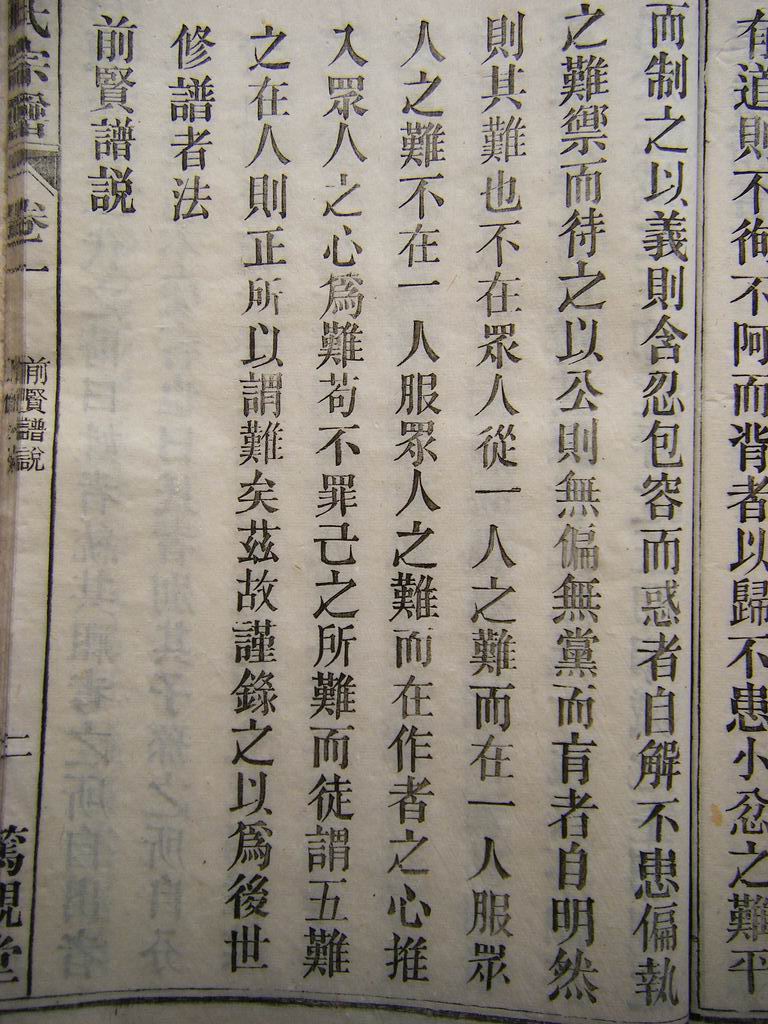 有道則不徇不阿而背者以歸不患小忿之難平
而制之以義則含忍包容而惑者自解不患偏執
之難禦而待之以公則無偏無黨而盲者自明然
則其難也不在眾人從一人之難而在一人服眾
人之難不在一人服眾人之難而在作者之心推
入眾人之心爲難苟不罪己之所難而徒謂五難
之在人則正所以謂難矣茲故謹錄之以爲後世
修譜者法
前賢譜説
氏宗譜
卷二
前賢譜說
二
篤親堂